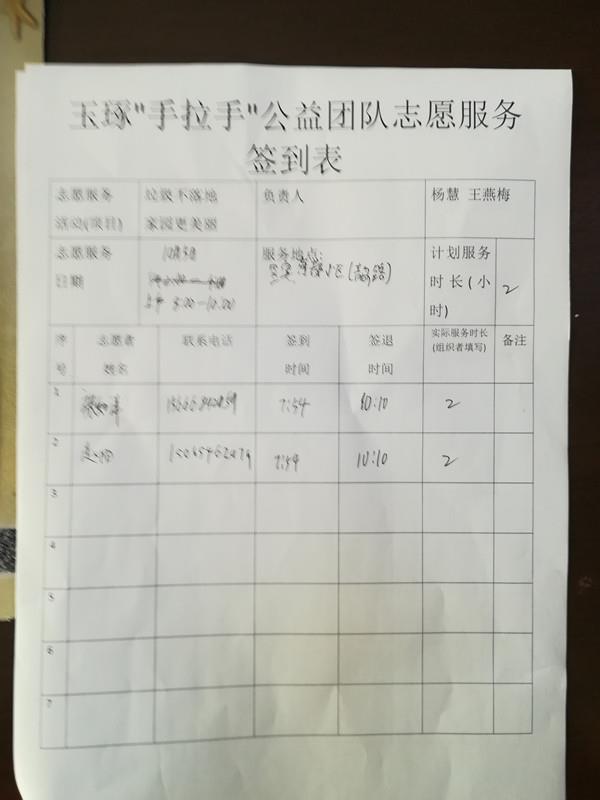 玉琢"手拉手"公益团队志愿服务
签到表
志愿服务 垃圾不落地 负责人 杨慧 王燕梅
活动(项目) 家园更美丽
志愿服务 服务地点: 计划服务
日期 小区 时长(小 2
上午 8:00-10:00 时)
序 志愿者 联系电话 签到 签退 实际服务时长 备注
号 姓名 时间 时间 (组织者填写)
1 7:54 10:10 2
2 7:54 10:10 2
3
4
5
6
7